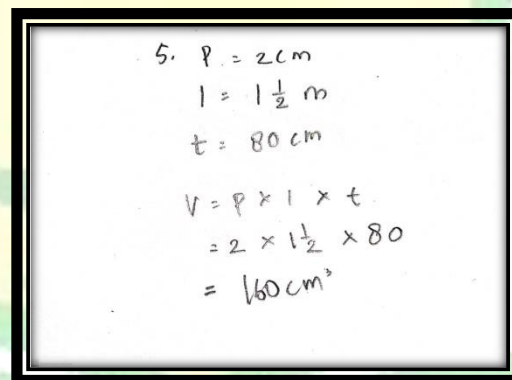 5. P = 2cm
l = 1 1/2 m
t = 80 cm
V = P x l x t
= 2 x 1 1/2 x 80
= 160 cm³